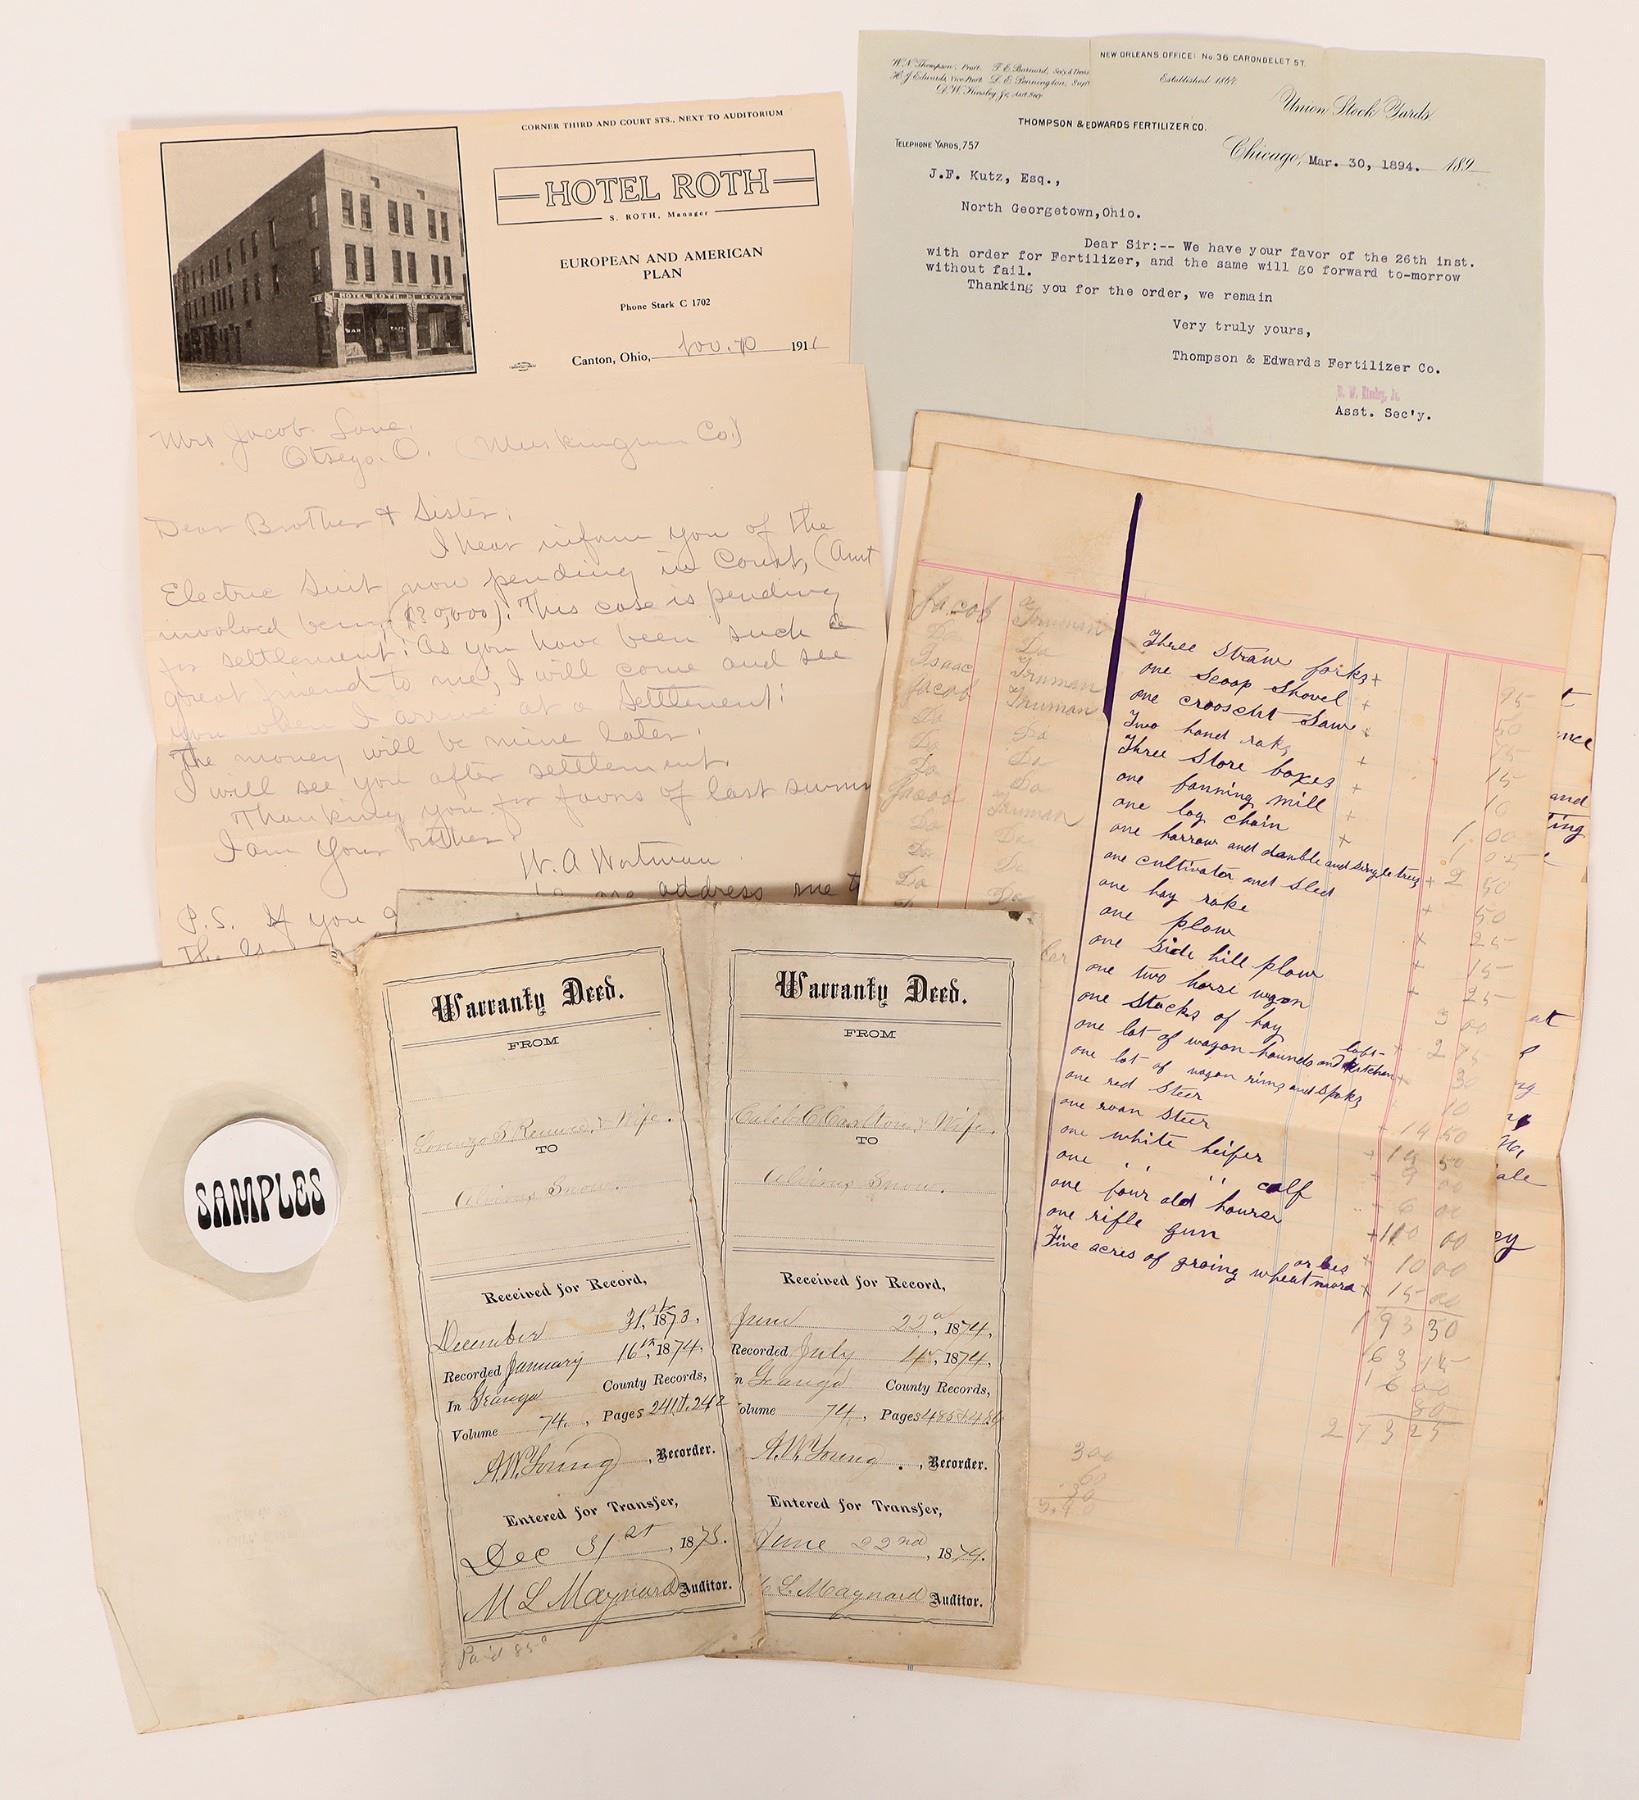 CORNER THIRD AND COURT STS., NEXT TO AUDITORIUM
HOTEL ROTH
S. ROTH, Manager
EUROPEAN AND AMERICAN
PLAN
Phone Stark C 1702
Canton, Ohio, Nov. 1911
HOTEL ROTH HOTEL
BAR
Mrs Jacob
Otsego. O. (Muskingum Co.)
Dear Brother & Sister;
I hear inform you of the
Electric Suit now pending in Court, (Amt
involved being This case is pending
for settlement: As you have been such a
great friend to me, I will come and see
you when I arrive at a Settlement:
The money will be mine later.
I will see you after settlement.
Thanking you for favors of last summ
I am your brother
W. A. Wortman
address me t
P.S. If you
The
NEW ORLEANS OFFICE: No. 36 CARONDELET ST.
W. N. Thompson, Prest. F. E. Barnard, Sec'y & Treas.
H. J. Edwards, Vice Prest. D. E. Pennington, Supt.
D. W. Kinsley Jr. Asst. Sec'y
Established 1864.
Union Stock Yards
THOMPSON & EDWARDS FERTILIZER CO.
TELEPHONE YARDS, 757
Chicago, Mar. 30, 1894. 189
J.F. Kutz, Esq.,
North Georgetown, Ohio.
Dear Sir:-- We have your favor of the 26th inst.
with order for Fertilizer, and the same will go forward to-morrow
without fail.
Thanking you for the order, we remain
Very truly yours,
Thompson & Edwards Fertilizer Co.
Asst. Sec'y.
Jacob Truman Three Straw forks + 95
Do Do one Scoop Shovel + 50
Isaac Truman one crooscht Saw + 75
Jacob Truman Two hand raks + 15
Do Do Three Store boxes + 10
Do Do one fanning mill + 1 00
Do Do one log chain +
Jacob Truman one harrow and dauble and single trees + 2 50
Do Do one cultivator and Sled + 50
Do Do one hay rake + 25
Do Do one plow + 15
one Side hill plow + 25
one two horse wagon 3 00
one Stacks of hay + 2 75
one lot of wagon hounds and 30
one lot of wagon rims and Spoks + 10
one red Steer + 14 50
one roan Steer + 50
one white heifer 00
one " " calf 6 00
one four old hourse + 00
one rifle gun + 10 00
Five acres of groing wheat more or les + 15 00
193 30
63 15
16 00
80
273 25
300
nce
and
ting
at
ale
ey
SAMPLES
Warranty Deed.
FROM
& Wife.
TO
Snow.
Received for Record,
December 31st, 1873.
Recorded January 16th, 1874.
In Geauga County Records,
Volume 74, Pages 241 & 242
A.W. Young, Recorder.
Entered for Transfer,
Dec 31st, 1873.
M L Maynard Auditor.
Paid 85c
Warranty Deed.
FROM
Caleb C Carlton & Wife.
TO
Snow.
Received for Record,
June 22d, 1874,
Recorded July 1874,
In Geauga County Records,
Volume 74, Pages 485 & 486
A.W. Young, Recorder.
Entered for Transfer,
June 22nd, 1874.
L. Maynard Auditor.